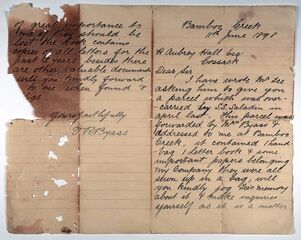 Bamboo Creek
11th June 1898
H Aubrey Hall Esq
Cossack
Dear Sir,
I have wrote Mr Lee
asking him to give you
a parcel which was over-
carried by S.S. in
april last. This parcel was
forwarded by &
addressed to me at Bamboo
Creek, it contained 1 hand
bag 1 letter book & some
important papers belonging
my Company they were all
sewn up in a bag, will
you kindly jog Lee's memory
about it & make inquiries
yourself as it is a matter
of great importance to
me if they should be
lost the book contains
copies of all letters for the
past 2 years besides there
are other valuable documents
will you kindly forward
to me when found &
Yours faithfully
Byass